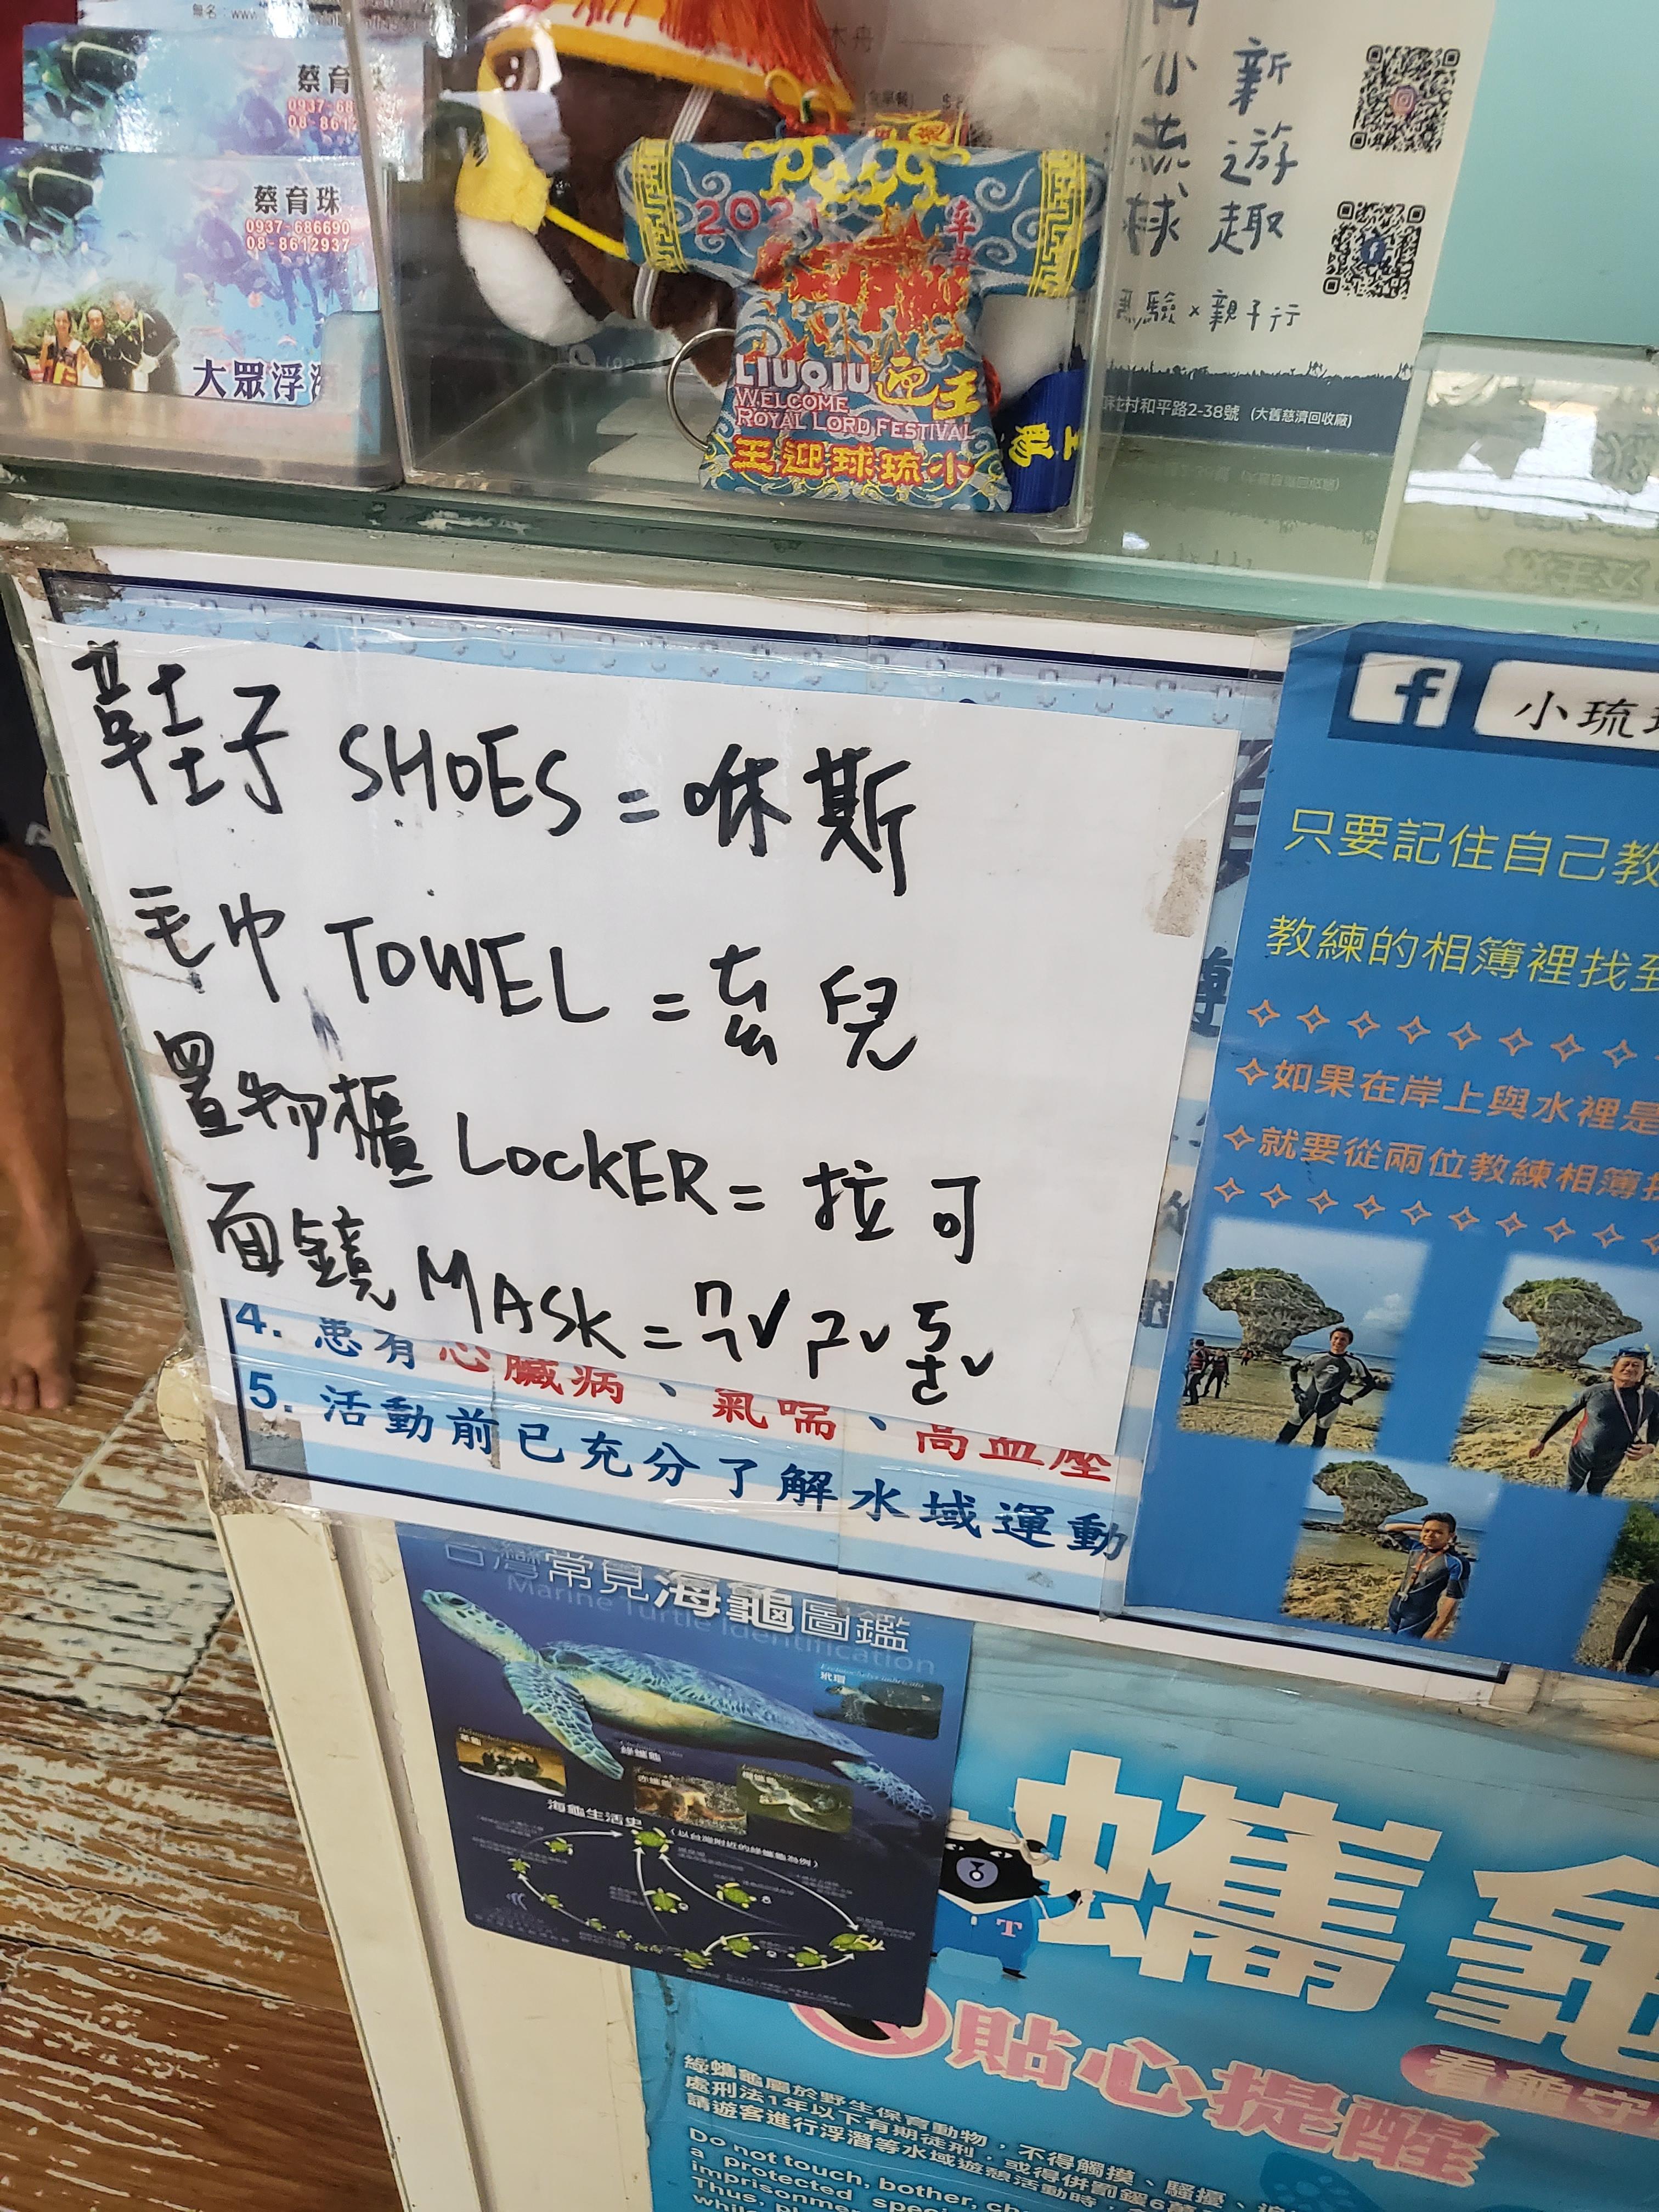 蔡育珠
0937-68
08-8612
蔡育珠
0937-686690
08-8612937
大眾浮
2021
LIUQIU 迎王
WELCOME
ROYAL LORD FESTIVAL
王迎球琉小
新遊趣
驗×親子行
村和平路2-38號 (大舊慈濟回收廠)
鞋子 SHOES = 咻斯
毛巾 TOWEL = ㄊㄠ 兒
置物櫃 LOCKER = 拉可
面鏡 MASK = ㄇㄚˇ ㄗˇ ㄎㄜˇ
4. 患有心臟病、氣喘、高血壓
5. 活動前已充分了解水域運動
f 小琉
只要記住自己教
教練的相簿裡找到
✧如果在岸上與水裡是
✧就要從兩位教練相簿
台灣常見海龜圖鑑
Marine Turtle Identification
玳瑁
綠蠵龜
赤蠵龜
欖蠵龜
海龜生活史
(以台灣附近的綠蠵龜為例)
T
蠵龜
貼心提醒
看龜守
綠蠵龜屬於野生保育動物，不得觸摸、騷擾、
處刑法1年以下有期徒刑，或得併罰鍰6萬
請遊客進行浮潛等水域遊憩活動時，
Do not touch, bother, ch
a protected spec
imprisonmen
Thus, pl
while